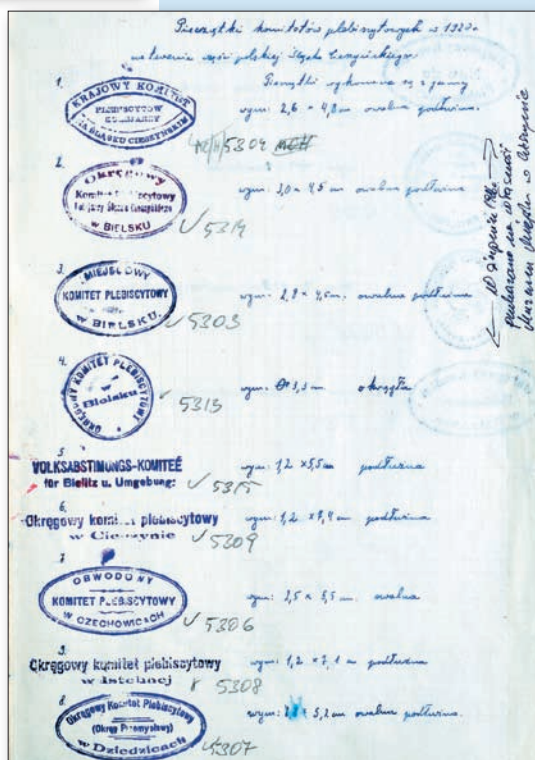 Pieczątki komitetów plebiscytowych z 1920 r.
na terenie części polskiej Śląska Cieszyńskiego.
Pieczątki wykonane są z gumy
1.
KRAJOWY KOMITET
PLEBISCYTOWY
NA ŚLĄSKU CIESZYŃSKIM
wym: 2,6 × 4,8 cm owalna podłużna.
5304
2.
Okręgowy
Komitet Plebiscytowy
w BIELSKU
wym: 3,0 × 4,5 cm owalna podłużna
✓ 5314
3.
MIEJSCOWY
KOMITET PLEBISCYTOWY
w BIELSKU.
wym: 2,8 × 4,5 cm. owalna podłużna
✓ 5303
4.
OKRĘGOWY KOMITET PLEBISCYTOWY
w
Bielsku
wym: 3,3 cm okrągła
5313
5
VOLKSABSTIMUNGS-KOMITEÉ
für Bielitz u. Umgebung:
wym: 1,2 × 5,5 cm podłużna
✓ 5315
6.
Okręgowy komitet plebiscytowy
w Cieszynie
wym: 1,2 × 7,4 cm podłużna
✓ 5309
7
OBWODOWY
KOMITET PLEBISCYTOWY
W CZECHOWICACH
wym: 2,5 × 5,5 cm. owalna
✓ 5306
Okręgowy komitet plebiscytowy
w Istebnej
wym: 1,2 × 7,1 cm podłużna
5308
Okręgowy Komitet Plebiscytowy
(Okręg Przemysłowy)
w Dziedzicach
5,2 cm owalna podłużna.
5307
przekazano na własność